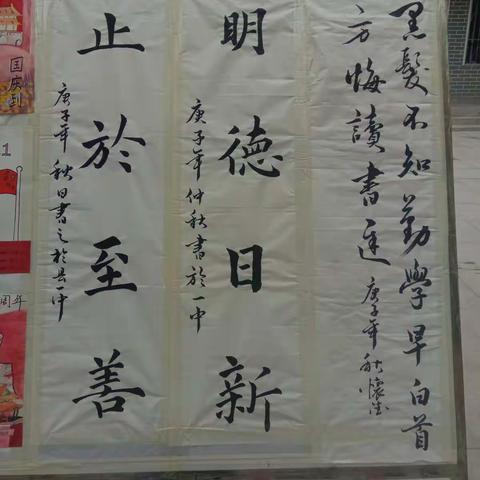 黑髮不知勤學早白首
方悔讀書遲庚子年秋懷德
明德日新
庚子年仲秋書於一中
止於至善
庚子年秋日書之於縣一中
国庆到
1
周年